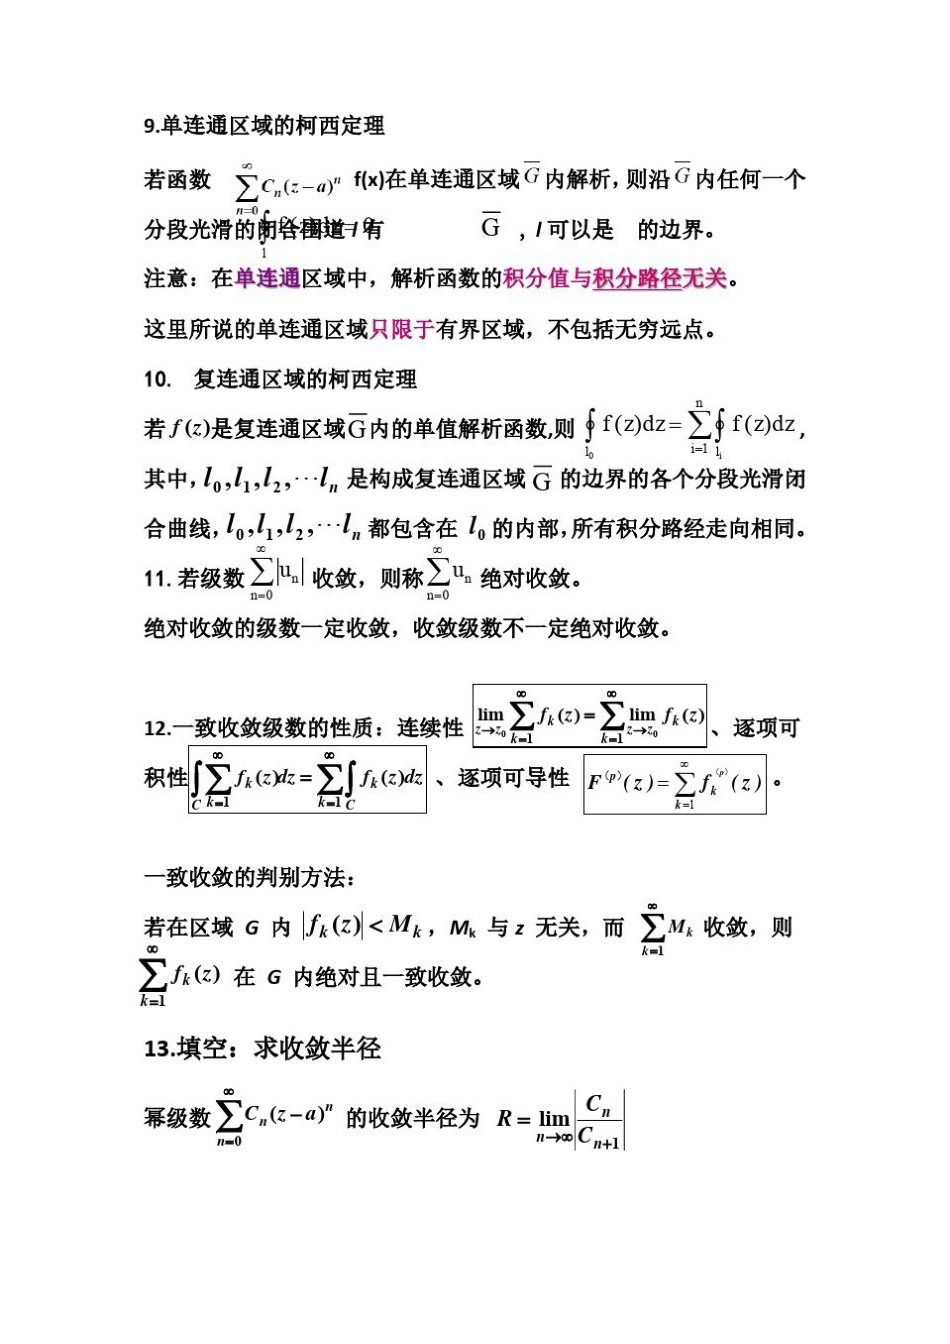 9.单连通区域的柯西定理
若函数 \sum_{n=0}^{\infty} C_n(z-a)^n f(x)在单连通区域 \overline{G} 内解析，则沿 \overline{G} 内任何一个
分段光滑的闭合围道 l 有 \overline{G} ，l 可以是 的边界。
注意：在单连通区域中，解析函数的积分值与积分路径无关。
这里所说的单连通区域只限于有界区域，不包括无穷远点。
10. 复连通区域的柯西定理
若 f(z)是复连通区域\overline{G}内的单值解析函数,则 \oint_{l_0} f(z)dz=\sum_{i=1}^{n}\oint_{l_i} f(z)dz,
其中，l_0,l_1,l_2,⋯l_n 是构成复连通区域 \overline{G} 的边界的各个分段光滑闭
合曲线，l_0,l_1,l_2,⋯l_n 都包含在 l_0 的内部，所有积分路经走向相同。
11. 若级数 \sum_{n=0}^{\infty}|u_n| 收敛，则称 \sum_{n=0}^{\infty}u_n 绝对收敛。
绝对收敛的级数一定收敛，收敛级数不一定绝对收敛。
12.一致收敛级数的性质：连续性 \lim_{z→z_0}\sum_{k=1}^{\infty} f_k(z)=\sum_{k=1}^{\infty}\lim_{z→z_0} f_k(z) 、逐项可
积性 \int_C\sum_{k=1}^{\infty} f_k(z)dz=\sum_{k=1}^{\infty}\int_C f_k(z)dz 、逐项可导性 F^{(p)}(z)=\sum_{k=1}^{\infty} f_k^{(p)}(z) 。
一致收敛的判别方法：
若在区域 G 内 |f_k(z)|<M_k，M_k 与 z 无关，而 \sum_{k=1}^{\infty}M_k 收敛，则
\sum_{k=1}^{\infty} f_k(z) 在 G 内绝对且一致收敛。
13.填空：求收敛半径
幂级数 \sum_{n=0}^{\infty} C_n(z-a)^n 的收敛半径为 R=\lim_{n→∞}|\frac{C_n}{C_{n+1}}|